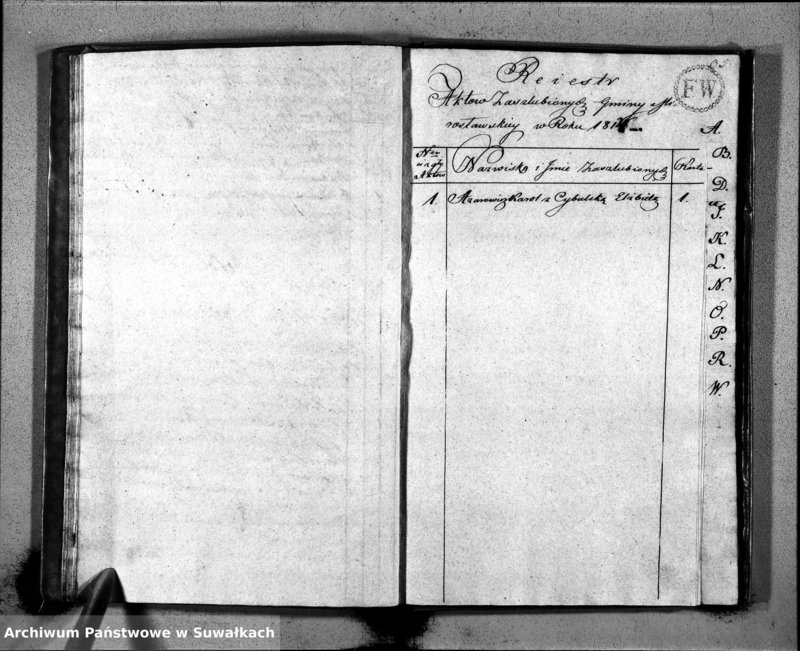 Reiestr
Aktow Zaszlubionych Gminy Mi-
rosławskiey w Roku
Nro
Aktow
Nazwisko i Jmie Zaszlubionych
Karta
1. Azarowicz Karol z Cybulską Elżbietą 1.
FW
A.
B.
D.
J.
K.
L.
N.
O.
P.
R.
W.
Archiwum Państwowe w Suwałkach